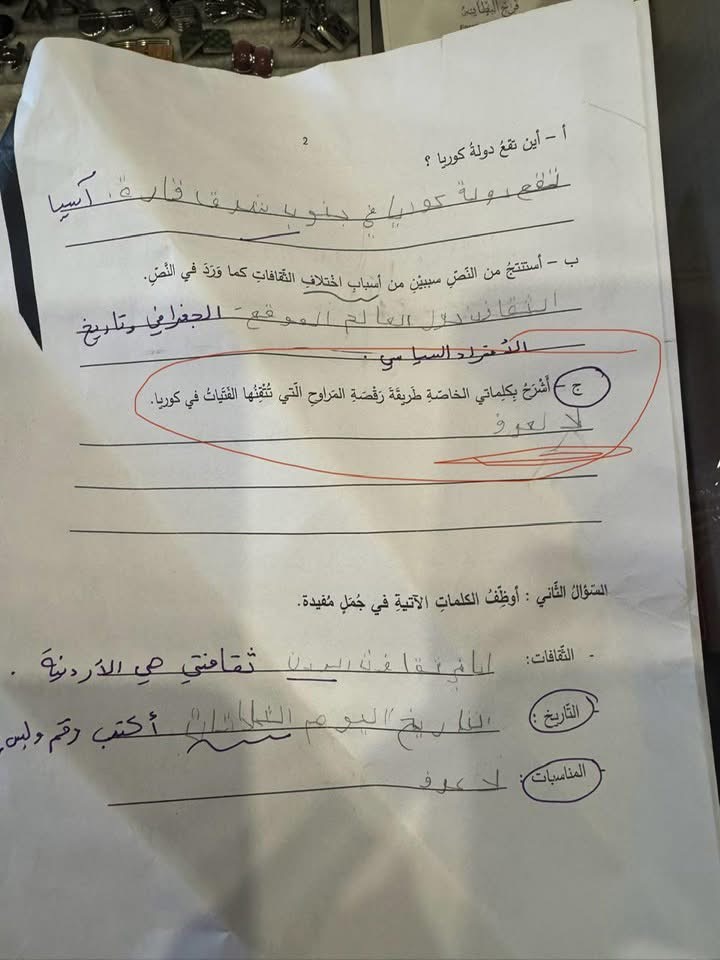 فرح البطاينة
2
أ – أين تقعُ دولةُ كوريا ؟
تقع دولة كوريا في جنوب شرق قارة. آسيا
ب – أستنتجُ من النّصِّ سببيْنِ من أسبابِ اخْتلافِ الثّقافاتِ كما وَرَدَ في النَّصِّ.
دول العالم الموقع الجغرافي وتاريخ
السياسي .
ج – أَشْرَحُ بِكلِماتي الخاصّةِ طَريقَةَ رَقْصَةِ المَراوحِ الّتي تُتْقِنُها الفَتَياتُ في كوريا.
لا لعرف
السّؤال الثّاني : أوظّفُ الكلماتِ الآتيةِ في جُمَلٍ مُفيدة.
- الثّقافات: ثقافتي هي الأردنية .
- التّاريخ : التاريخ اليوم الثلاثاء أكتب رقم وليس
المناسبات : لا عرف